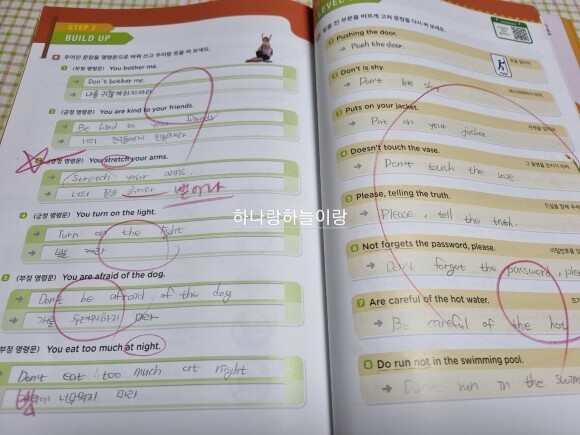 STEP 2
BUILD UP
주어진 문장을 명령문으로 바꿔 쓰고 우리말 뜻을 써 보세요.
1 (부정 명령문) You bother me.
→ Don't bother me.
→ 나를 귀찮게 하지 마라
2 (긍정 명령문) You are kind to your friends.
→ Be kind to your friends
→ 너의 친구들에게 친절해라
3 (긍정 명령문) You stretch your arms.
→ Stretch your arms.
→ 너의 팔을 뻗어라
4 (긍정 명령문) You turn on the light.
→ Turn on the light
→ 불 켜라
5 (부정 명령문) You are afraid of the dog.
→ Don't be afraid of the dog
→ 개를 두려워하지 마라
(부정 명령문) You eat too much at night.
→ Don't eat too much at night
→ 너무 먹지 마라
LEVEL
밑줄 친 부분을 바르게 고쳐 문장을 다시 써 보세요.
Pushing the door.
→ Push the door.
Don't is shy.
→ Don't be
Puts on your jacket.
→ Put on your jacket
Doesn't touch the vase.
→ Don't touch the vase
Please, telling the truth.
→ Please, tell the truth.
6 Not forgets the password, please.
→ Don't forget the password,
7 Are careful of the hot water.
→ Be careful of the hot
8 Do run not in the swimming pool.
→ Don't run in the
하나랑하늘이랑